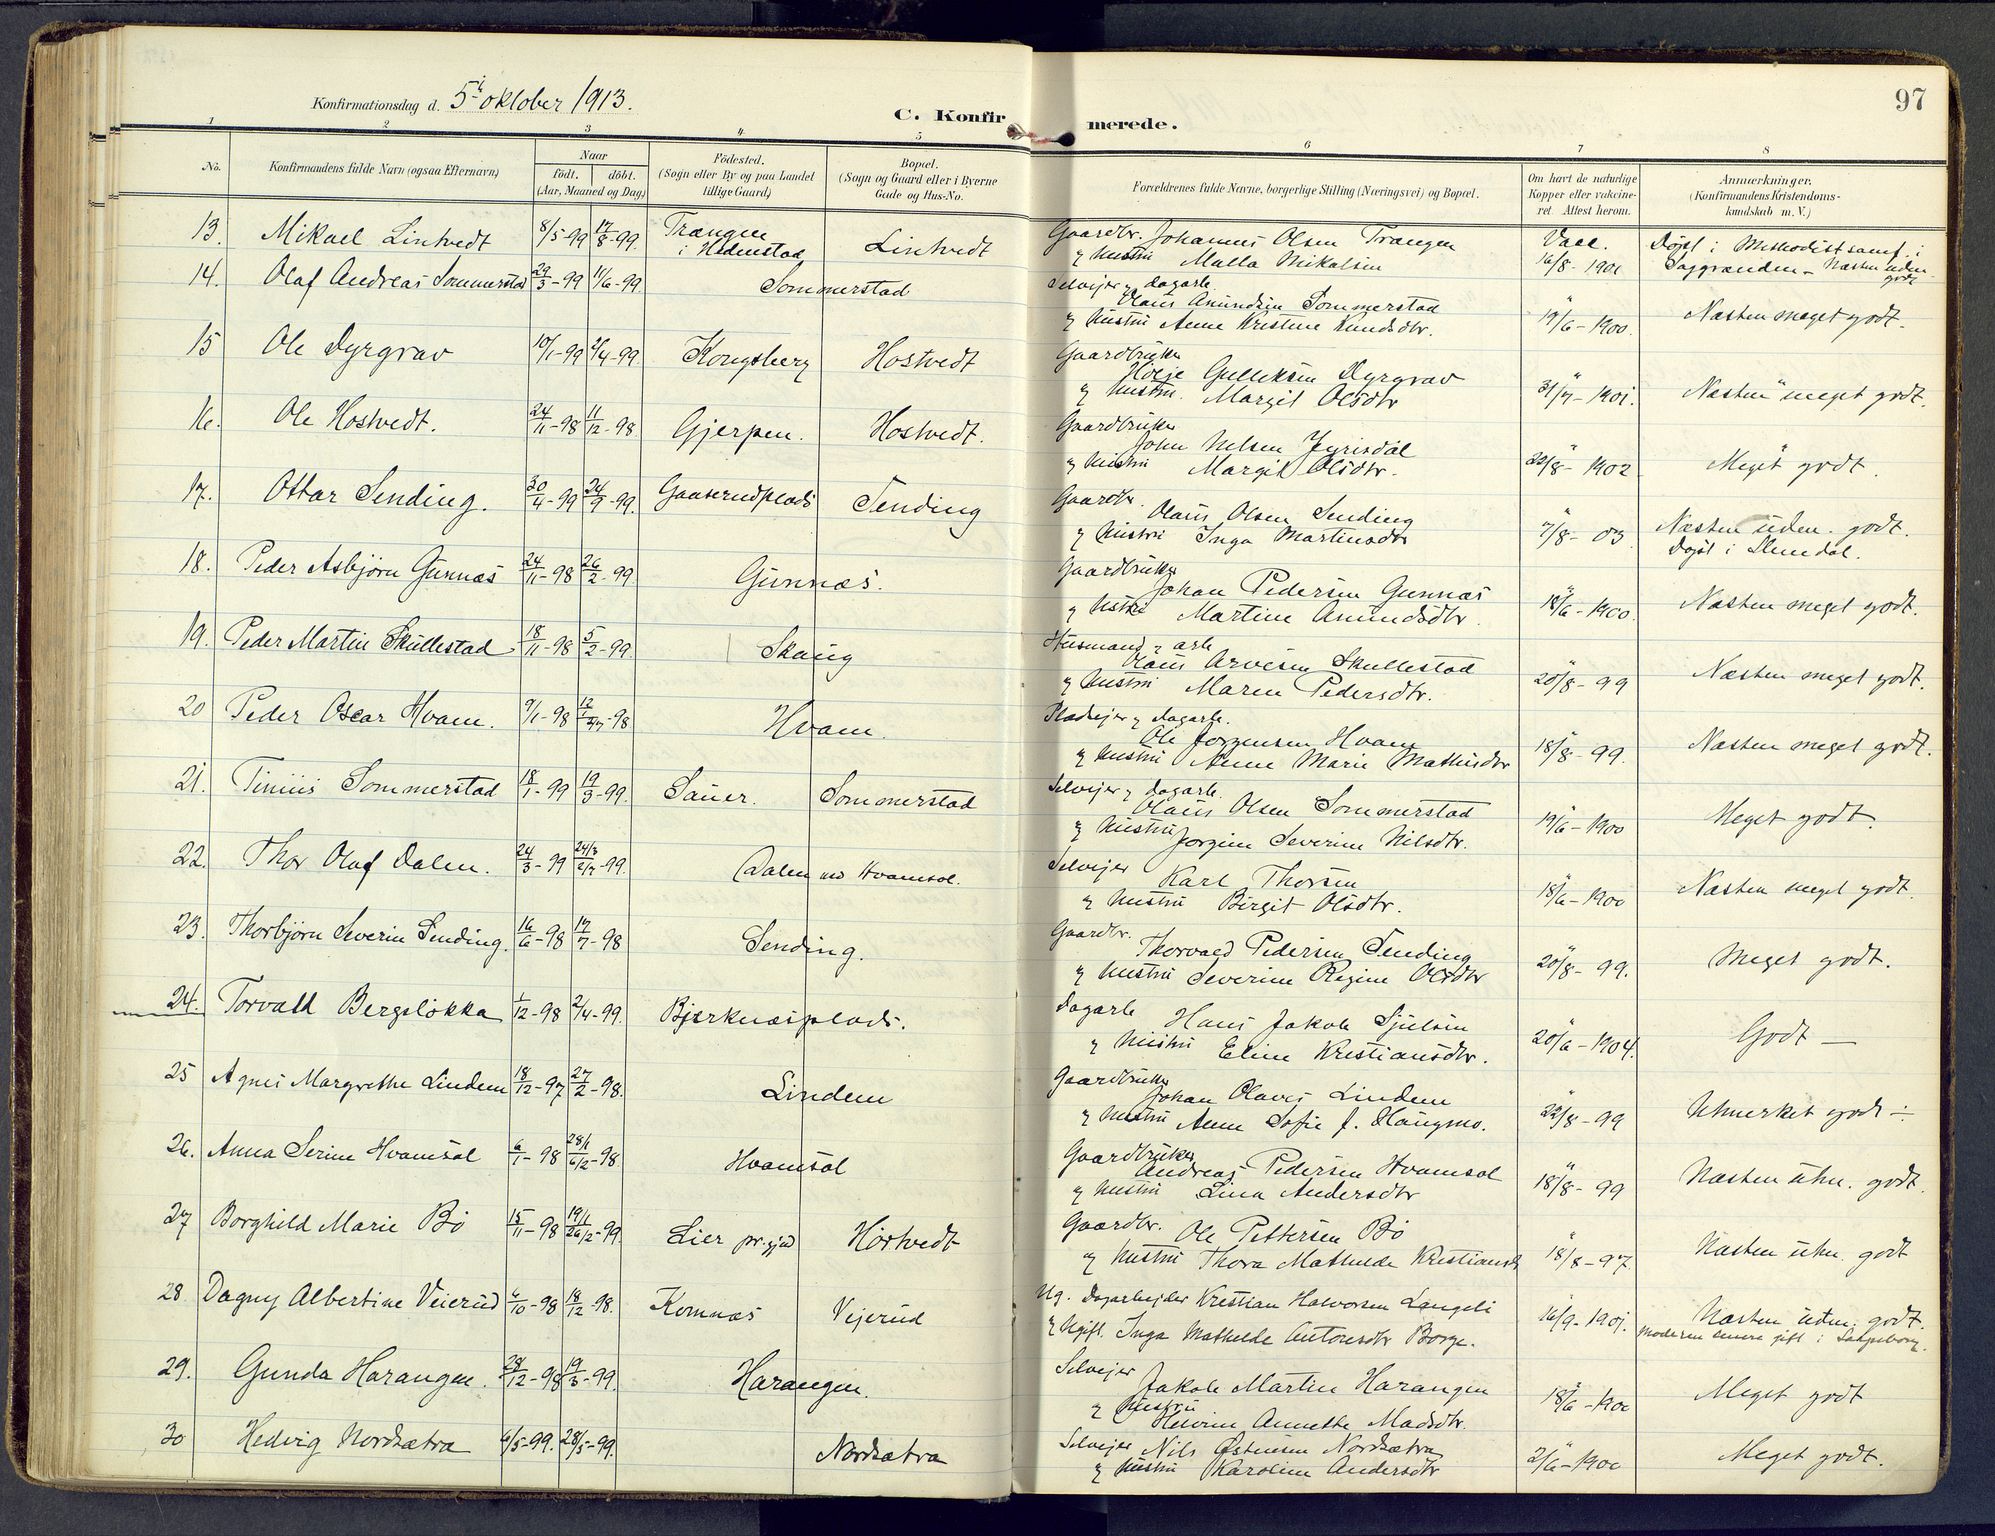 Konfirmationsdag d. 5te oktober 1913.
C. Konfirmerede.
97
1 2 3 4 5 6 7 8
No.
Konfirmandens fulde Navn (ogsaa Efternavn)
Naar
födt. döbt.
(Aar, Maaned og Dag)
Födested.
(Sogn eller By og paa Landet
tillige Gaard)
Bopæl.
(Sogn og Gaard eller i Byerne
Gade og Hus-No.
Forældrenes fulde Navne, borgerlige Stilling (Næringsvei) og Bopæl.
Om havt de naturlige
Kopper eller vakcine-
ret. Attest herom.
Anmærkninger.
(Konfirmandens Kristendoms-
kundskab m. V.)
13. Mikael Lintvedt 8/5-99 17/8-99. Trangen i Hedenstad Lintvedt Gaardbr. Johannes Olsen Trangen Vacc. Døpt i Methodistsamf. i
& hustru Malla Mikalsen 16/8-1901 Saggrenden - Næsten uden. godt
14. Olaf Andreas Sommerstad 29/3-99 11/6-99. Sommerstad Selveier & dagarb.
Olaus Amundsen Sommerstad
& hustru Anne Kristine Knudsdtr. 19/6-1900. Næsten meget godt.
15 Ole Dyrgrav 10/1-99 2/4-99. Kongsberg Hostvedt Gaardbruker
Helje Gulliksen Dyrgrav
& hustru. Margit Olsdtr 31/7-1901. Næsten meget godt.
16. Ole Hostvedt. 24/11-98 11/12-98. Gjerpen. Hostvedt. Gaardbruker
John Nelsen Fyrisdal
& hustru Margit Olsdtr. 22/8-1902 Meget godt.
17. Ottar Sending. 30/4-99 24/9-99. Gaaserudplads Sending Gaardbr.
Olaus Olsen Sending
& hustru Inga Martinsdtr 7/8-03 Næsten uden. godt.
Døpt i Slemdal.
18. Peder Asbjørn Gunnæs 24/11-98 26/2-99. Gunnæs. Gaardbruker
Johan Pedersen Gunnæs
& hustru Martine Amundsdtr. 18/6-1900 Næsten meget godt.
19. Peder Martin Skullestad 18/11-98 5/2-99. Skaug Husmand & arb.
Olaus Arvesen Skullestad
& hustru Maren Pedersdtr. 20/8-99 Næsten meget godt.
20 Peder Oscar Hvam. 9/1-98 Hvam. Pladseier & dagarb.
Ole Jørgensen Hvam
& hustru Anne Marie Mathisdtr 18/8-99. Næsten meget godt.
21. Tinius Sommerstad 18/1-99 19/3-99. Sauer. Sommerstad Selveier & dagarb.
Olaus Olsen Sommerstad
& hustru Jorgine Severine Nilsdtr. 19/6-1900 Meget godt.
22. Thor Olaf Dalen. 24/3-99 24/3 2/7-99. Dalen ved Hvamsal. Selveier
Karl Thorsen
& hustru Birgit Olsdtr. 18/6-1900 Næsten meget godt.
23. Thorbjørn Severin Sending. 16/6-98 17/7-98 Sending. Gaardbr.
Thorvald Pedersen Sending
& hustru Severine Regine Olsdtr 20/8-99. Meget godt.
24. Torvald Bergsløkka 1/12-98 2/4-99. Bjerknæsplads. Dagarb
Hans Jakob Sjulsen
& hustru Eline Kristiansdtr. 20/6-1904. Godt —
25 Agnes Margrethe Lindem 18/12-97 27/2-98. Lindem Gaardbruker
Johan Olaves Lindem
& hustru Anne Sofie J. Haugmo. 22/8-99 Utmerket godt -
26. Anna Serine Hvamsal 6/1-98 28/1 6/2-98. Hvamsal Gaardbruker
Andreas Pedersen Hvamsal
& hustru Lina Andersdtr 18/8-99 Næsten utm. godt.
27 Borghild Marie Bö 15/11-98 19/1 26/2-99. Lier pr.gjæld Hörtvedt Gaardbr. Ole Pettersen Bö
& hustru Thora Mathilde Kristiansdtr 18/8-97. Næsten utm. godt
28. Dagny Albertine Veierud 4/10-98 18/12-98. Komnæs Vejerud Ug. Dagarbejder Kristian Halvorsen Langeli
& Ugift. Inga Mathilde Antonsdtr Borge. 16/9-1901. Næsten uden. godt.
moderen senere gift i Sarpsborg.
29. Gunda Harangen. 28/12-98 19/3-99. Harangen. Selveier
Jakob Martin Harangen
& hustru Annette Madsdtr. 18/6-1900 Meget godt
30 Hedvig Nordsætra 6/5-99. 28/5-99. Nordsætra Selveier Nils Østensen Nordsætra
& hustru Karoline Andersdtr 2/6-1900 Meget godt.